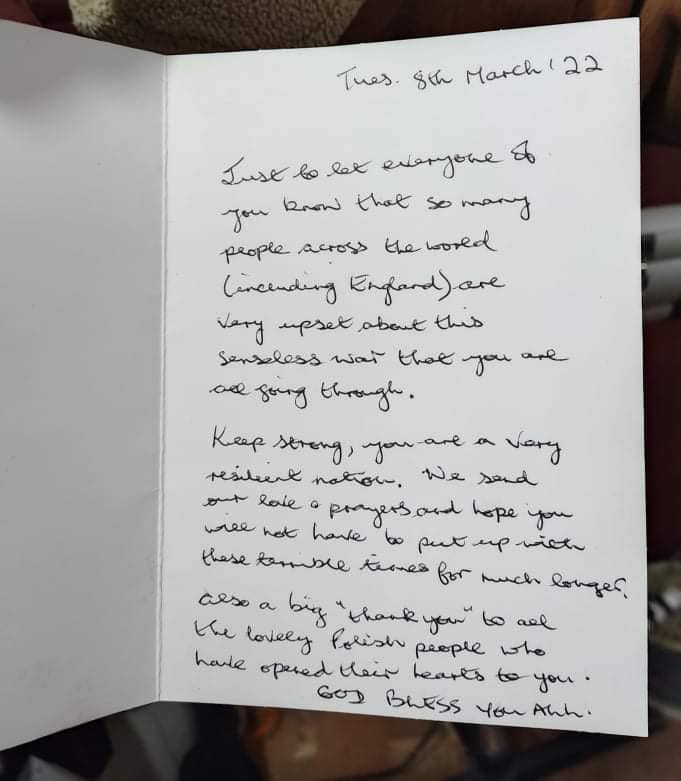 Tues. 8th March '22
Just to let everyone of
you know that so many
people across the world
(including England) are
very upset about this
senseless war that you are
all going through.
Keep strong, you are a very
resilient nation. We send
our love & prayers and hope you
will not have to put up with
these terrible times for much longer.
Also a big "thank you" to all
the lovely Polish people who
have opened their hearts to you.
GOD BLESS YOU ALL.